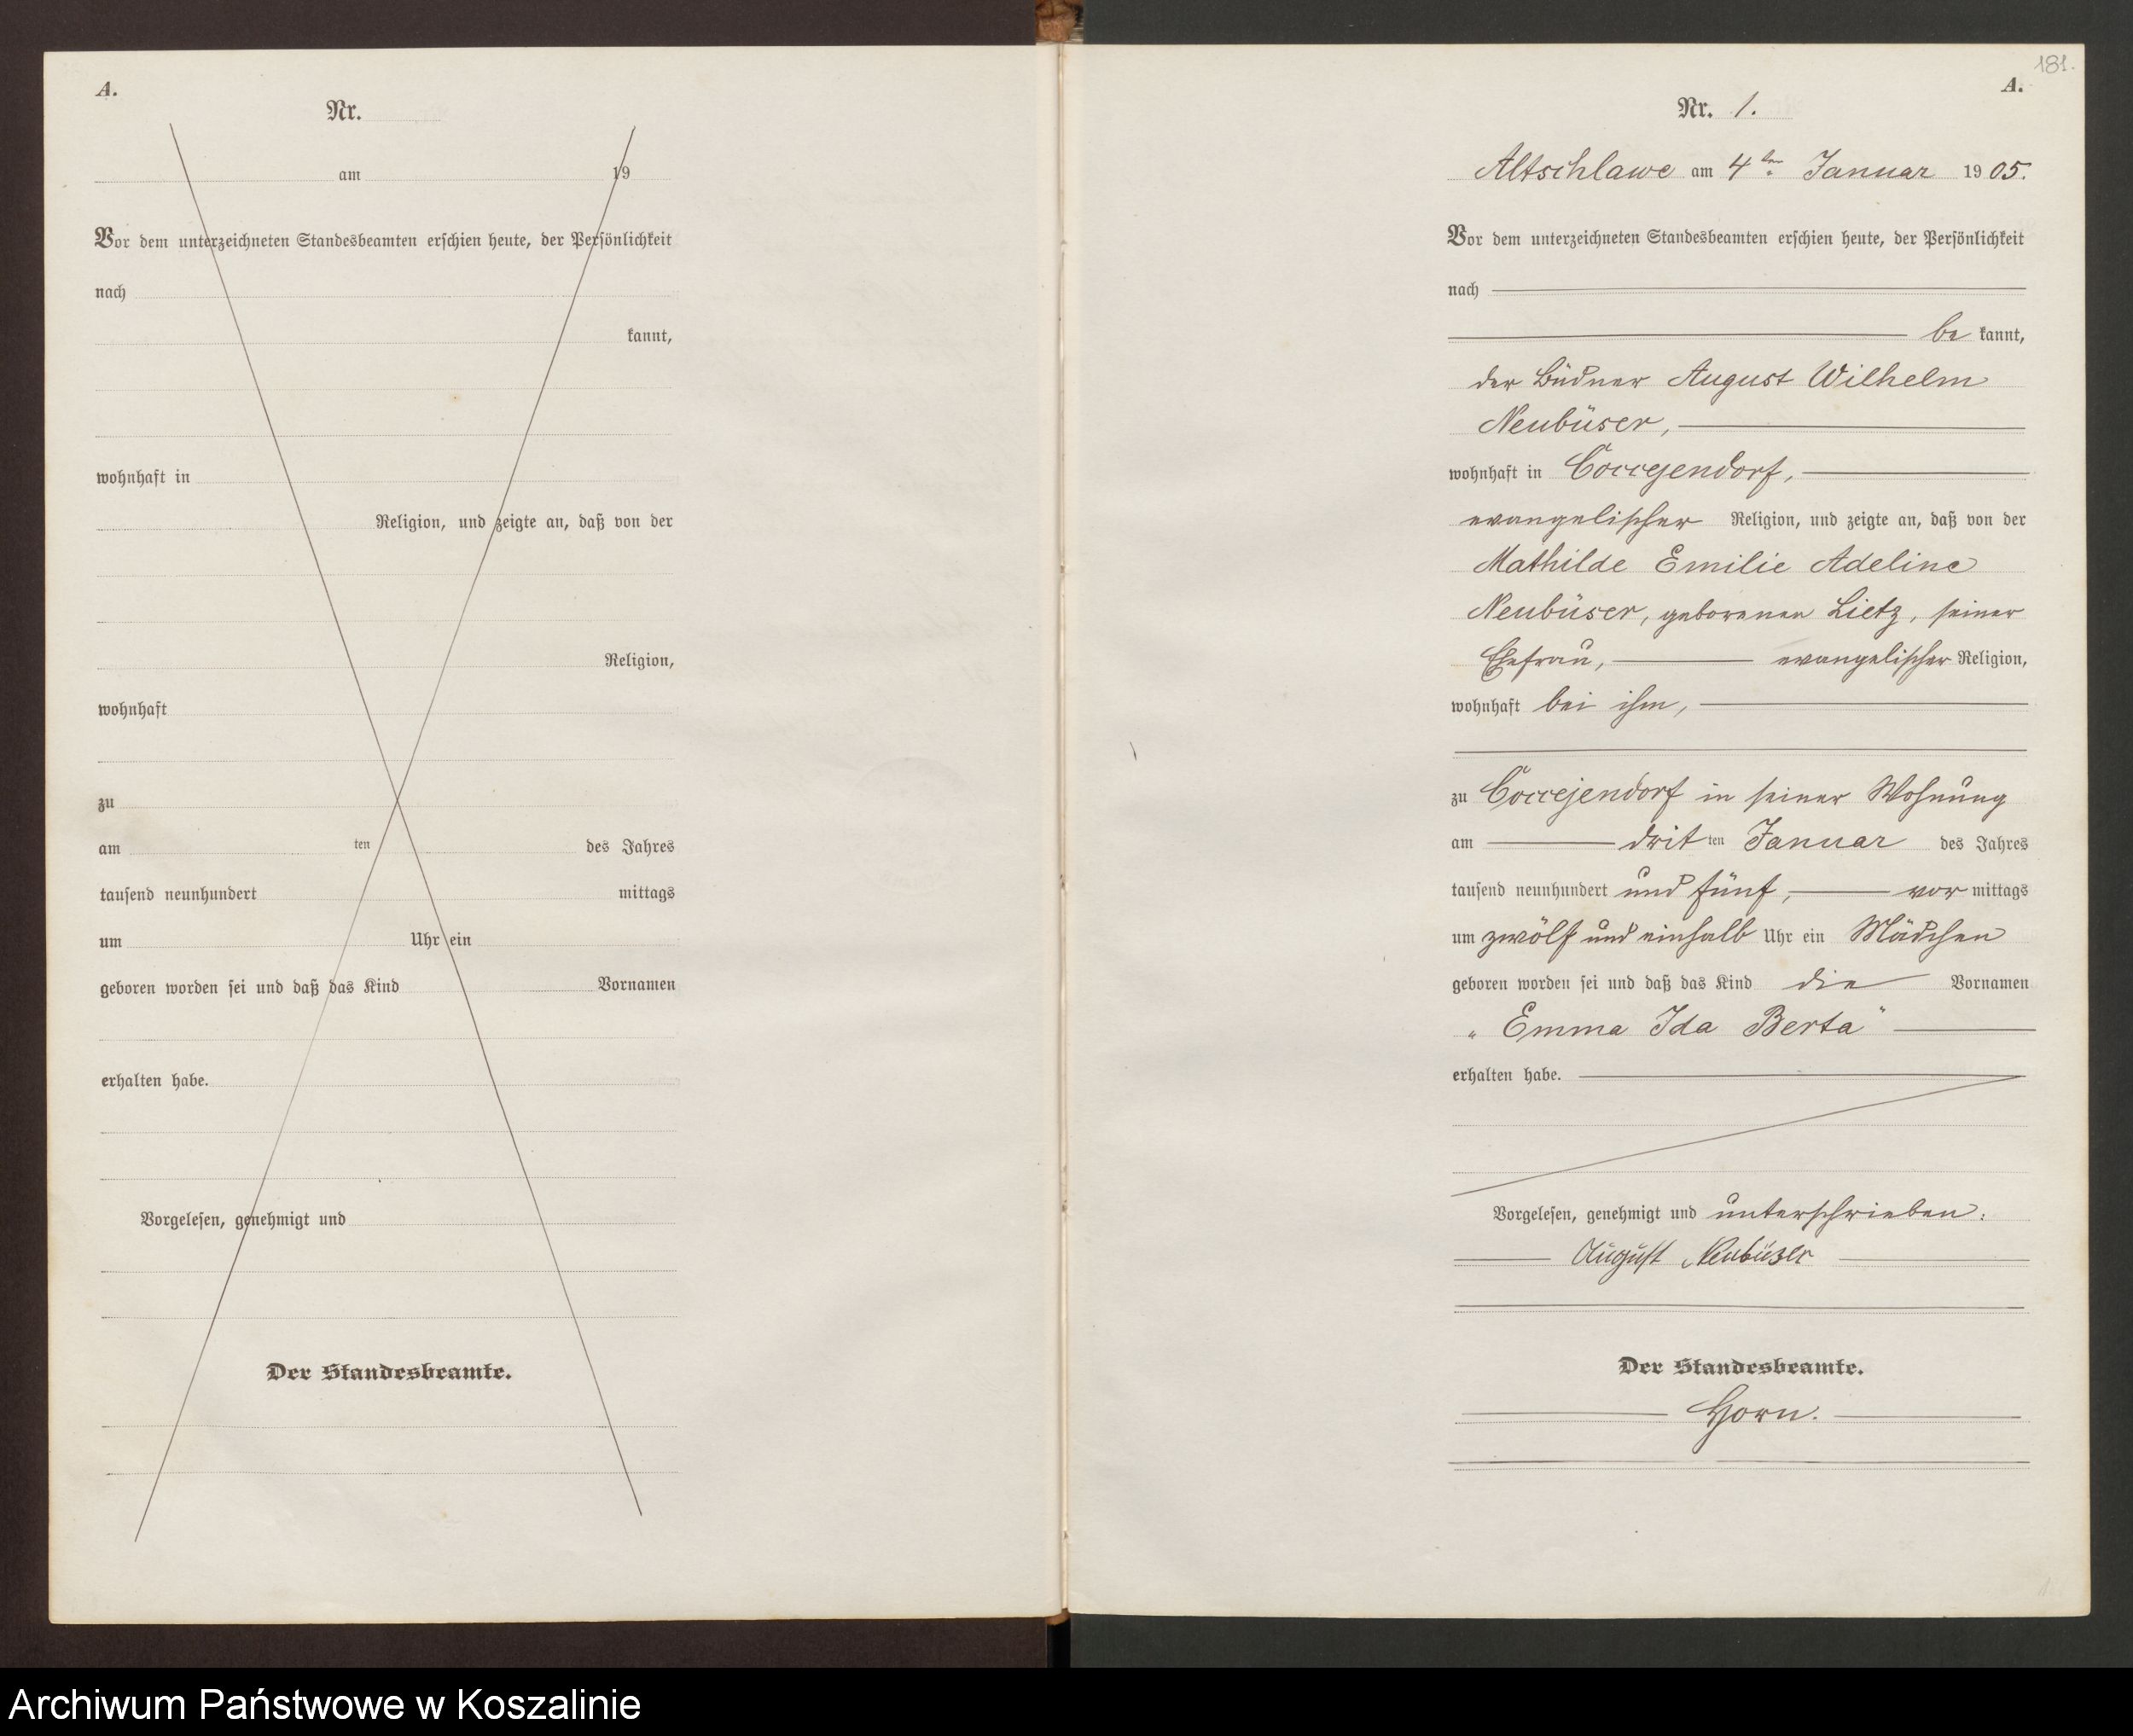 A.
Nr.
am 19
Vor dem unterzeichneten Standesbeamten erschien heute, der Persönlichkeit
nach
kannt,
wohnhaft in
Religion, und zeigte an, daß von der
Religion,
wohnhaft
zu
am ten des Jahres
tausend neunhundert mittags
um Uhr ein
geboren worden sei und daß das Kind Vornamen
erhalten habe.
Vorgelesen, genehmigt und
Der Standesbeamte.
181.
A.
Nr. 1.
Altschlawe am 4ten Januar 1905.
Vor dem unterzeichneten Standesbeamten erschien heute, der Persönlichkeit
nach
be kannt,
der Büdner August Wilhelm
Neubüser,
wohnhaft in Coccejendorf,
evangelischer Religion, und zeigte an, daß von der
Mathilde Emilie Adeline
Neubüser, geborenen Lietz, seiner
Ehefrau, evangelischer Religion,
wohnhaft bei ihm,
zu Coccejendorf in seiner Wohnung
am dritten Januar des Jahres
tausend neunhundert und fünf, vor mittags
um zwölf und einhalb Uhr ein Mädchen
geboren worden sei und daß das Kind die Vornamen
„Emma Ida Berta"
erhalten habe.
Vorgelesen, genehmigt und unterschrieben:
August Neubüser
Der Standesbeamte.
Horn.
Archiwum Państwowe w Koszalinie